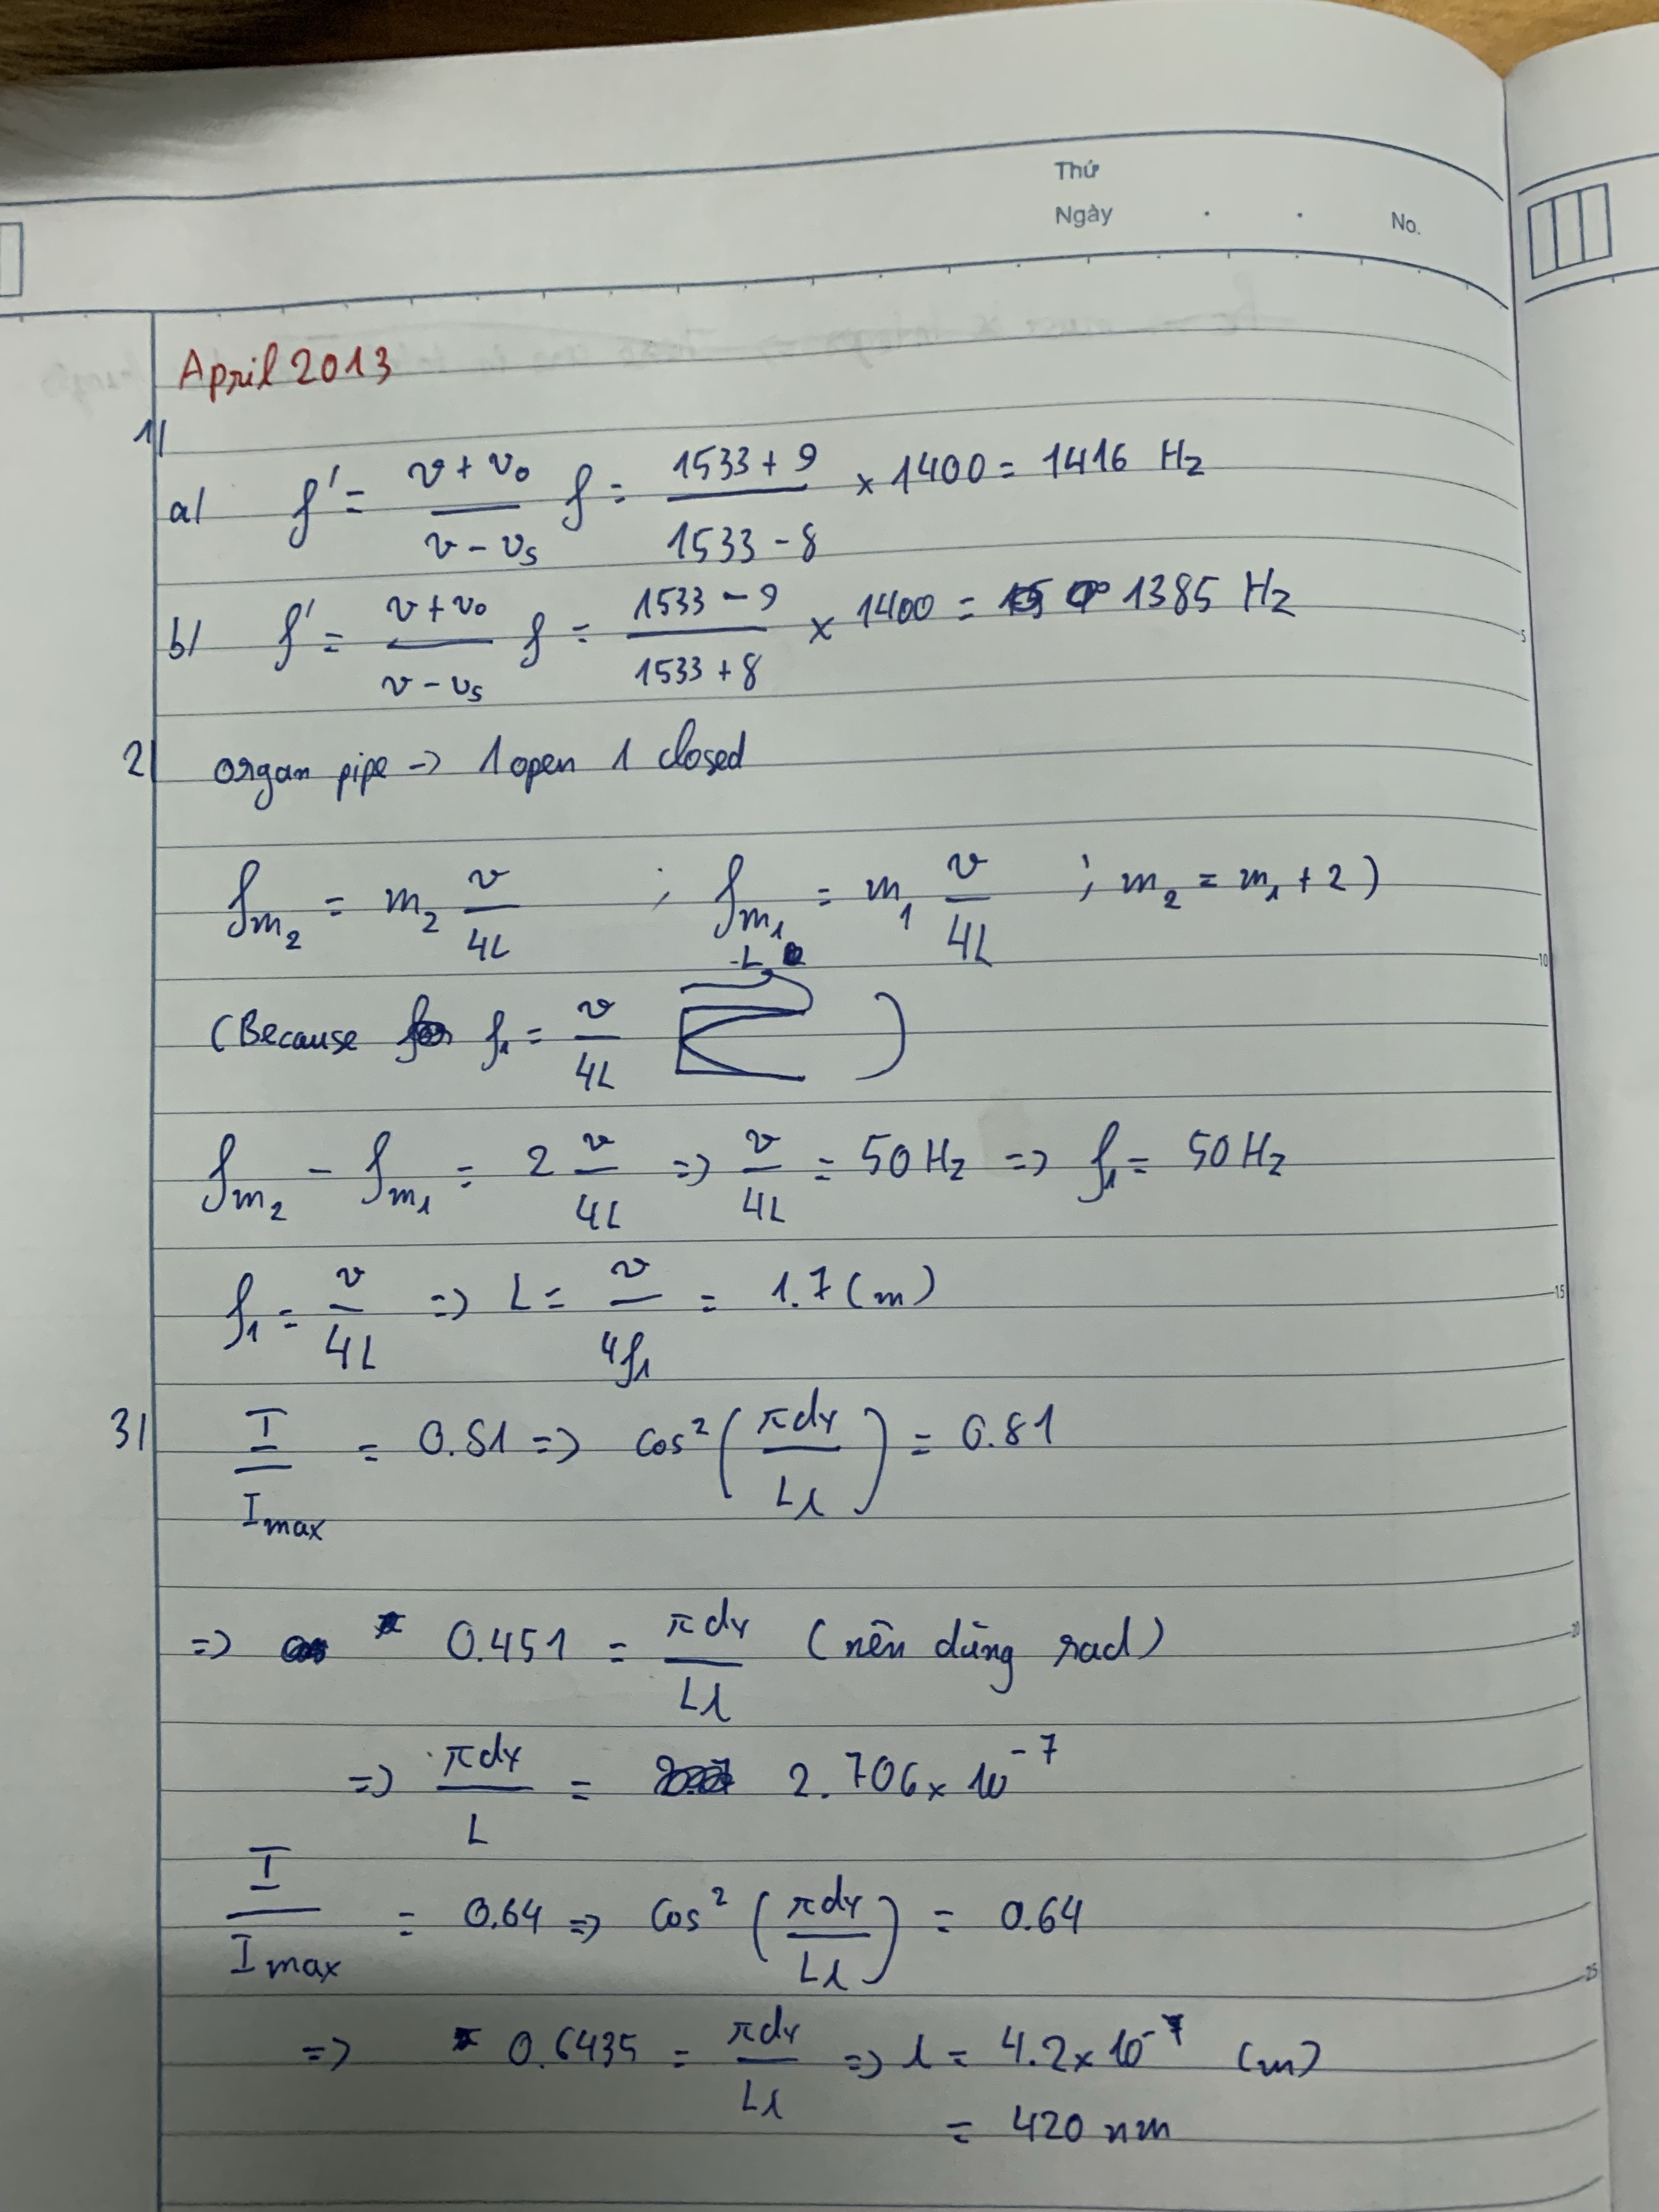 Thứ
Ngày . . No.
April 2013
1/
a/ f' = (v + v₀)/(v - vₛ) f = (1533 + 9)/(1533 - 8) × 1400 = 1416 Hz
b/ f' = (v + v₀)/(v - vₛ) f = (1533 - 9)/(1533 + 8) × 1400 = 1385 Hz
5
2/ organ pipe → 1 open 1 closed
f_m₂ = m₂ v/4L ; f_m₁ = m₁ v/4L ; m₂ = m₁ + 2 )
10
L
(Because f₁ = v/4L )
f_m₂ - f_m₁ = 2 v/4L => v/4L = 50 Hz => f₁ = 50 Hz
f₁ = v/4L => L = v/4f₁ = 1.7 (m)
15
3/ I/Imax = 0.81 => cos² (πdy/Lλ) = 0.81
=> 0.451 = πdy/Lλ (nên dùng rad)
20
=> πdy/L = 2.706 × 10⁻⁷
I/Imax = 0.64 => cos² (πdy/Lλ) = 0.64
25
=> 0.6435 = πdy/Lλ => λ = 4.2 × 10⁻⁷ (m)
= 420 nm